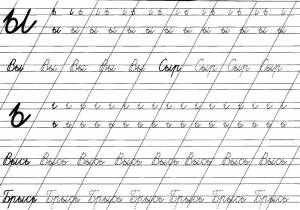 ы
ы ы ы ы ы ы ы ы ы ы ы ы ы ы
Вы Вы Вы Вы Вы Сыр Сыр Сыр Сыр
ь
Высь Высь Высь Высь Высь Высь Высь Высь
Брысь Брысь Брысь Брысь Брысь Брысь Брысь